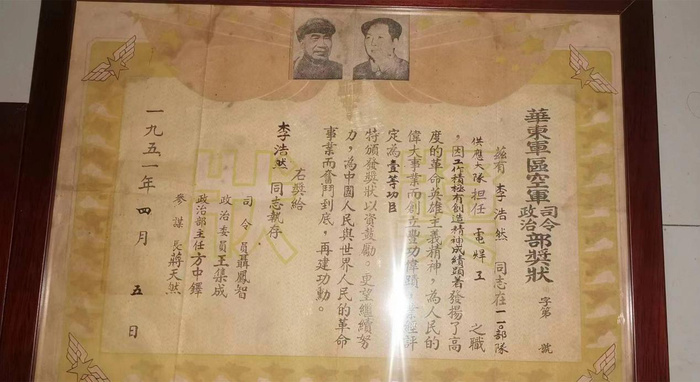 華東軍區空軍司令政治部獎狀
字第 號
茲有 李浩然 同志在 一一〇部隊
供應大隊 担任 電焊工 之職
，因工作積極有創造精神成績顯著發揚了高
度的革命英雄主義精神，為人民的
偉大事業而創立豐功偉蹟，評
定為壹等功臣
特頒發獎狀以資鼓勵。更望繼續努
力，為中國人民與世界人民的革命
事業而奮鬥到底，再建功勳。
右獎給
李浩然 同志執存
司令員聶鳳智
政治委員王集成
政治部主任方中鐸
參謀長蔣天然
一九五一年四月 五日